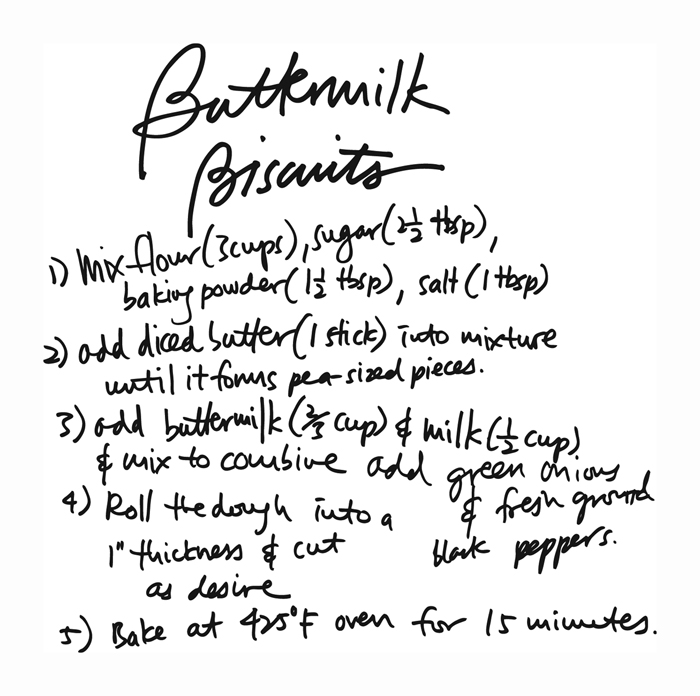 Buttermilk
Biscuits
1) mix flour (3 cups), sugar (2 1/2 tbsp),
baking powder (1 1/2 tbsp), salt (1 tbsp)
2) add diced butter (1 stick) into mixture
until it forms pea-sized pieces.
3) add buttermilk (2/3 cup) & milk (1/2 cup)
& mix to combine add green onions
& fresh ground
black peppers.
4) Roll the dough into a
1" thickness & cut
as desire
5) Bake at 425°F oven for 15 minutes.